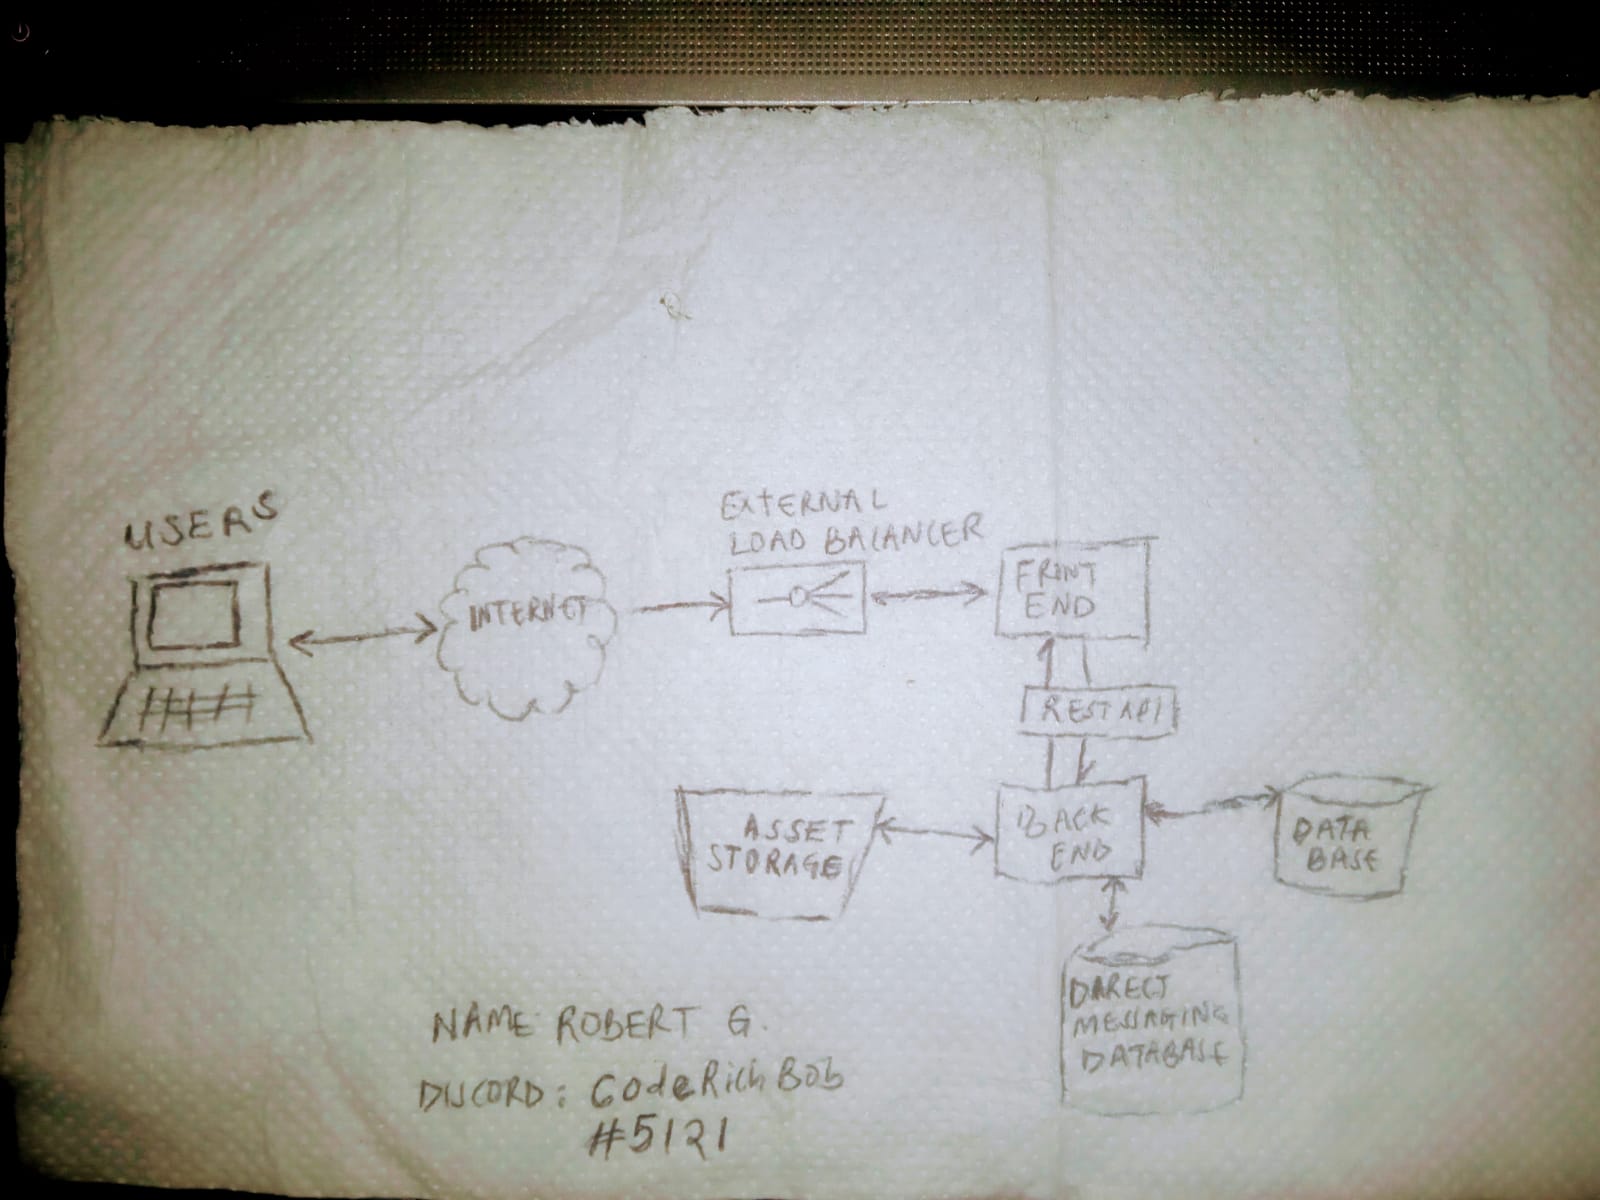 USERS
INTERNET
EXTERNAL
LOAD BALANCER
FRINT
END
REST API
BACK
END
ASSET
STORAGE
DATA
BASE
DARECT
MESSAGING
DATABASE
NAME ROBERT G.
DISCORD: CodeRichBob
#5121